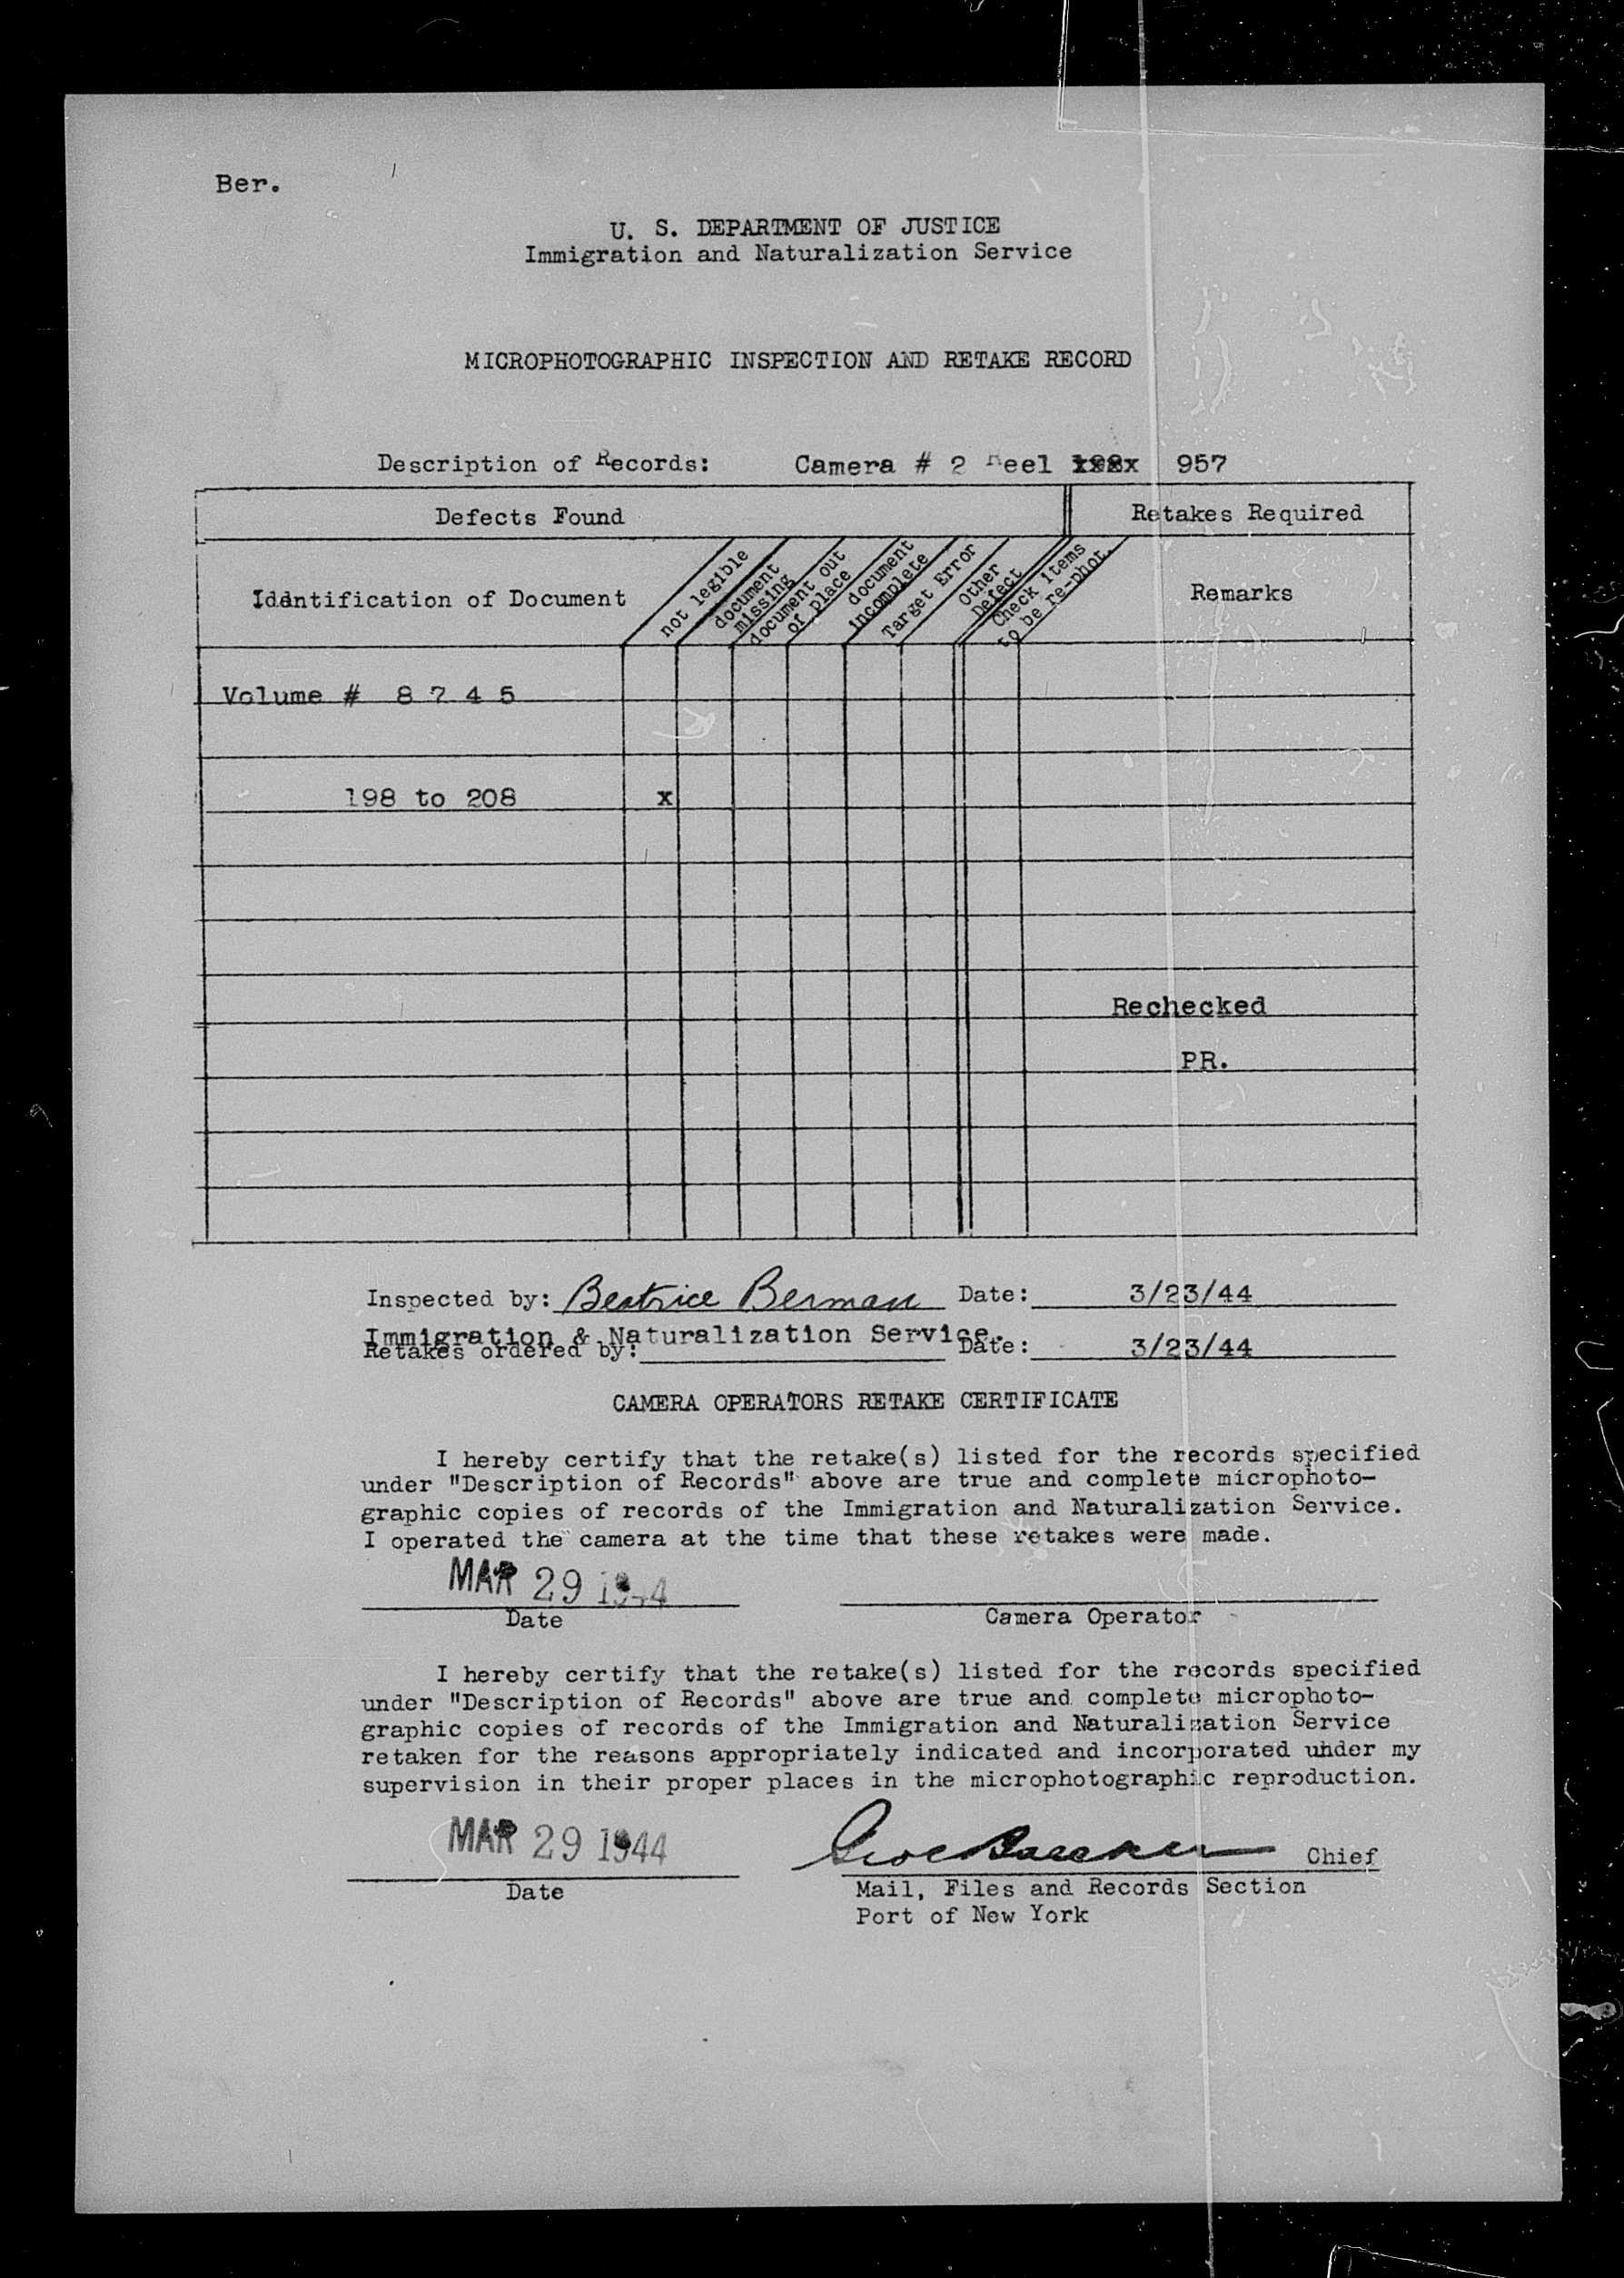 Ber.
U. S. DEPARTMENT OF JUSTICE
Immigration and Naturalization Service
MICROPHOTOGRAPHIC INSPECTION AND RETAKE RECORD
Description of Records: Camera # 2 Reel 957
Defects Found
Retakes Required
Identification of Document
not legible
document missing
document out of place
document incomplete
Target Error
Other Defect
Check items to be re-phot.
Remarks
Volume # 8 7 4 5
198 to 208 x
Rechecked
PR.
Inspected by: Beatrice Berman Date: 3/23/44
Immigration & Naturalization Service.
Retakes ordered by: Date: 3/23/44
CAMERA OPERATORS RETAKE CERTIFICATE
I hereby certify that the retake(s) listed for the records specified
under "Description of Records" above are true and complete microphoto-
graphic copies of records of the Immigration and Naturalization Service.
I operated the camera at the time that these retakes were made.
MAR 29 1944
Date Camera Operator
I hereby certify that the retake(s) listed for the records specified
under "Description of Records" above are true and complete microphoto-
graphic copies of records of the Immigration and Naturalization Service
retaken for the reasons appropriately indicated and incorporated under my
supervision in their proper places in the microphotographic reproduction.
MAR 29 1944 Chief
Date Mail, Files and Records Section
Port of New York